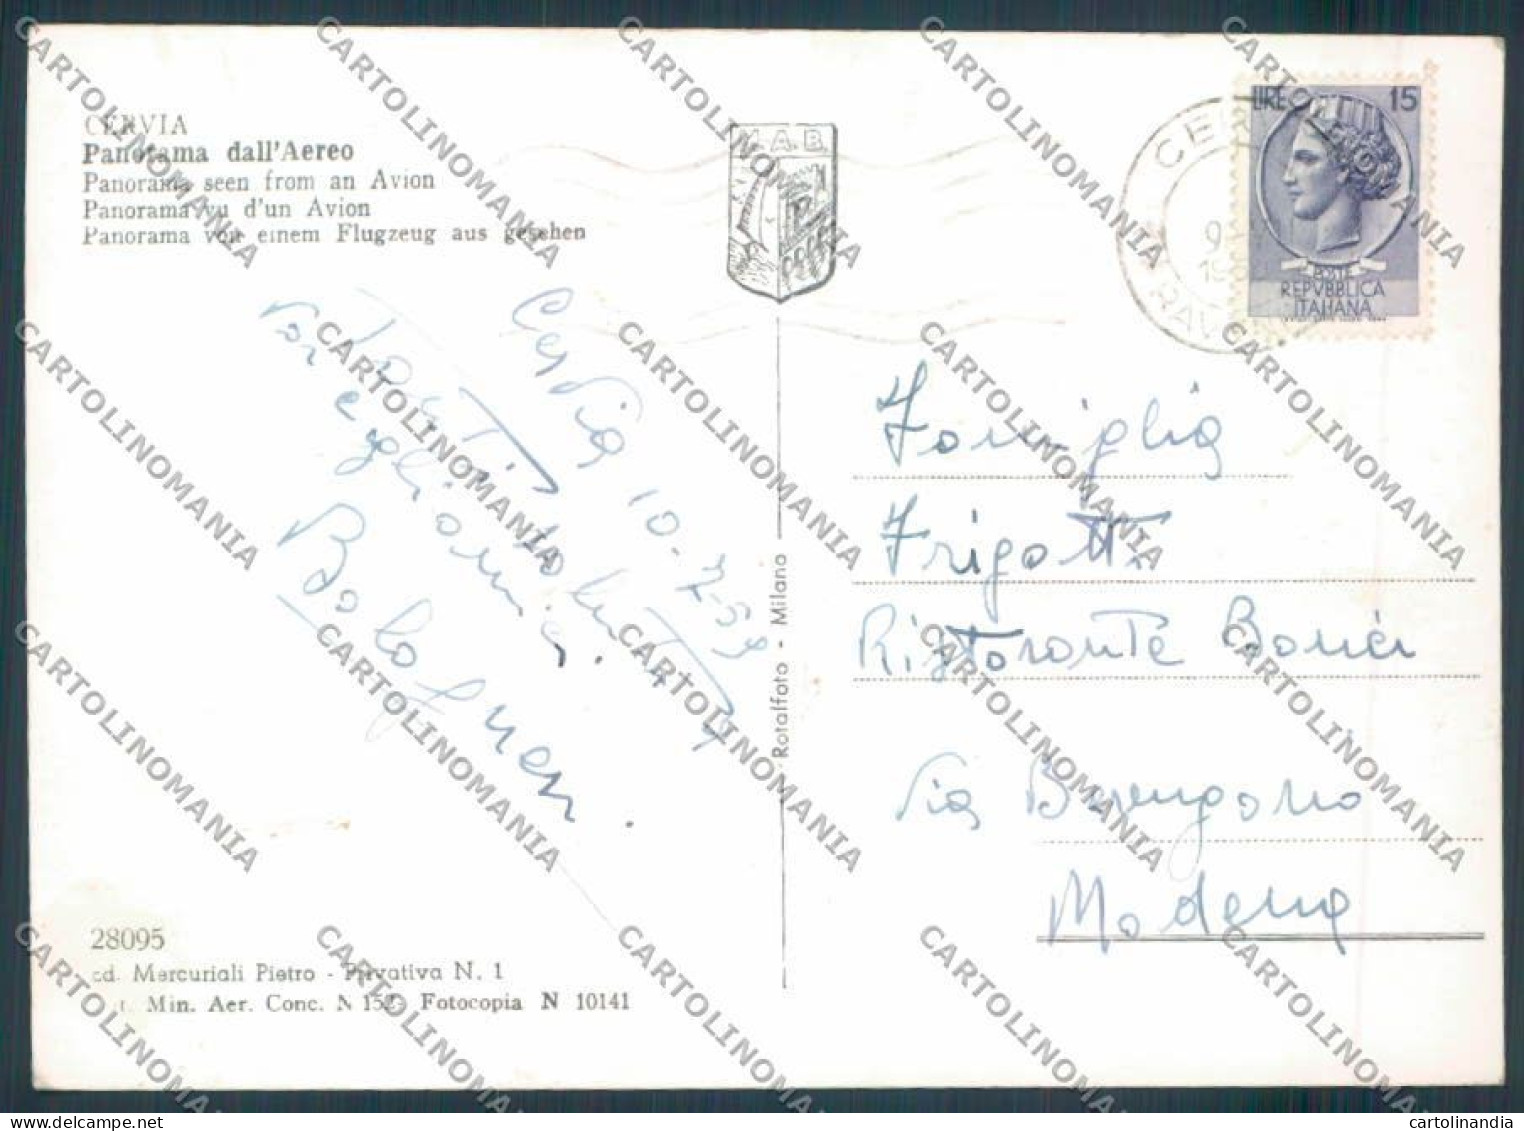 CERVIA
Panorama dall'Aereo
Panorama seen from an Avion
Panorama vu d'un Avion
Panorama von einem Flugzeug aus gesehen
M.A.B.
LIRE 15
POSTE
REPVBBLICA
ITALIANA
Cervia 10-7-59
Tanti saluti
voi e
famiglia.
Bolo
Rotalfoto - Milano
Famiglia
Frigotti
Ristorante
Via Berengario
Modena
28095
Ed. Mercuriali Pietro - Privativa N. 1
Aut. Min. Aer. Conc. N 152 - Fotocopia N 10141
CARTOLINOMANIA
cartolinandia